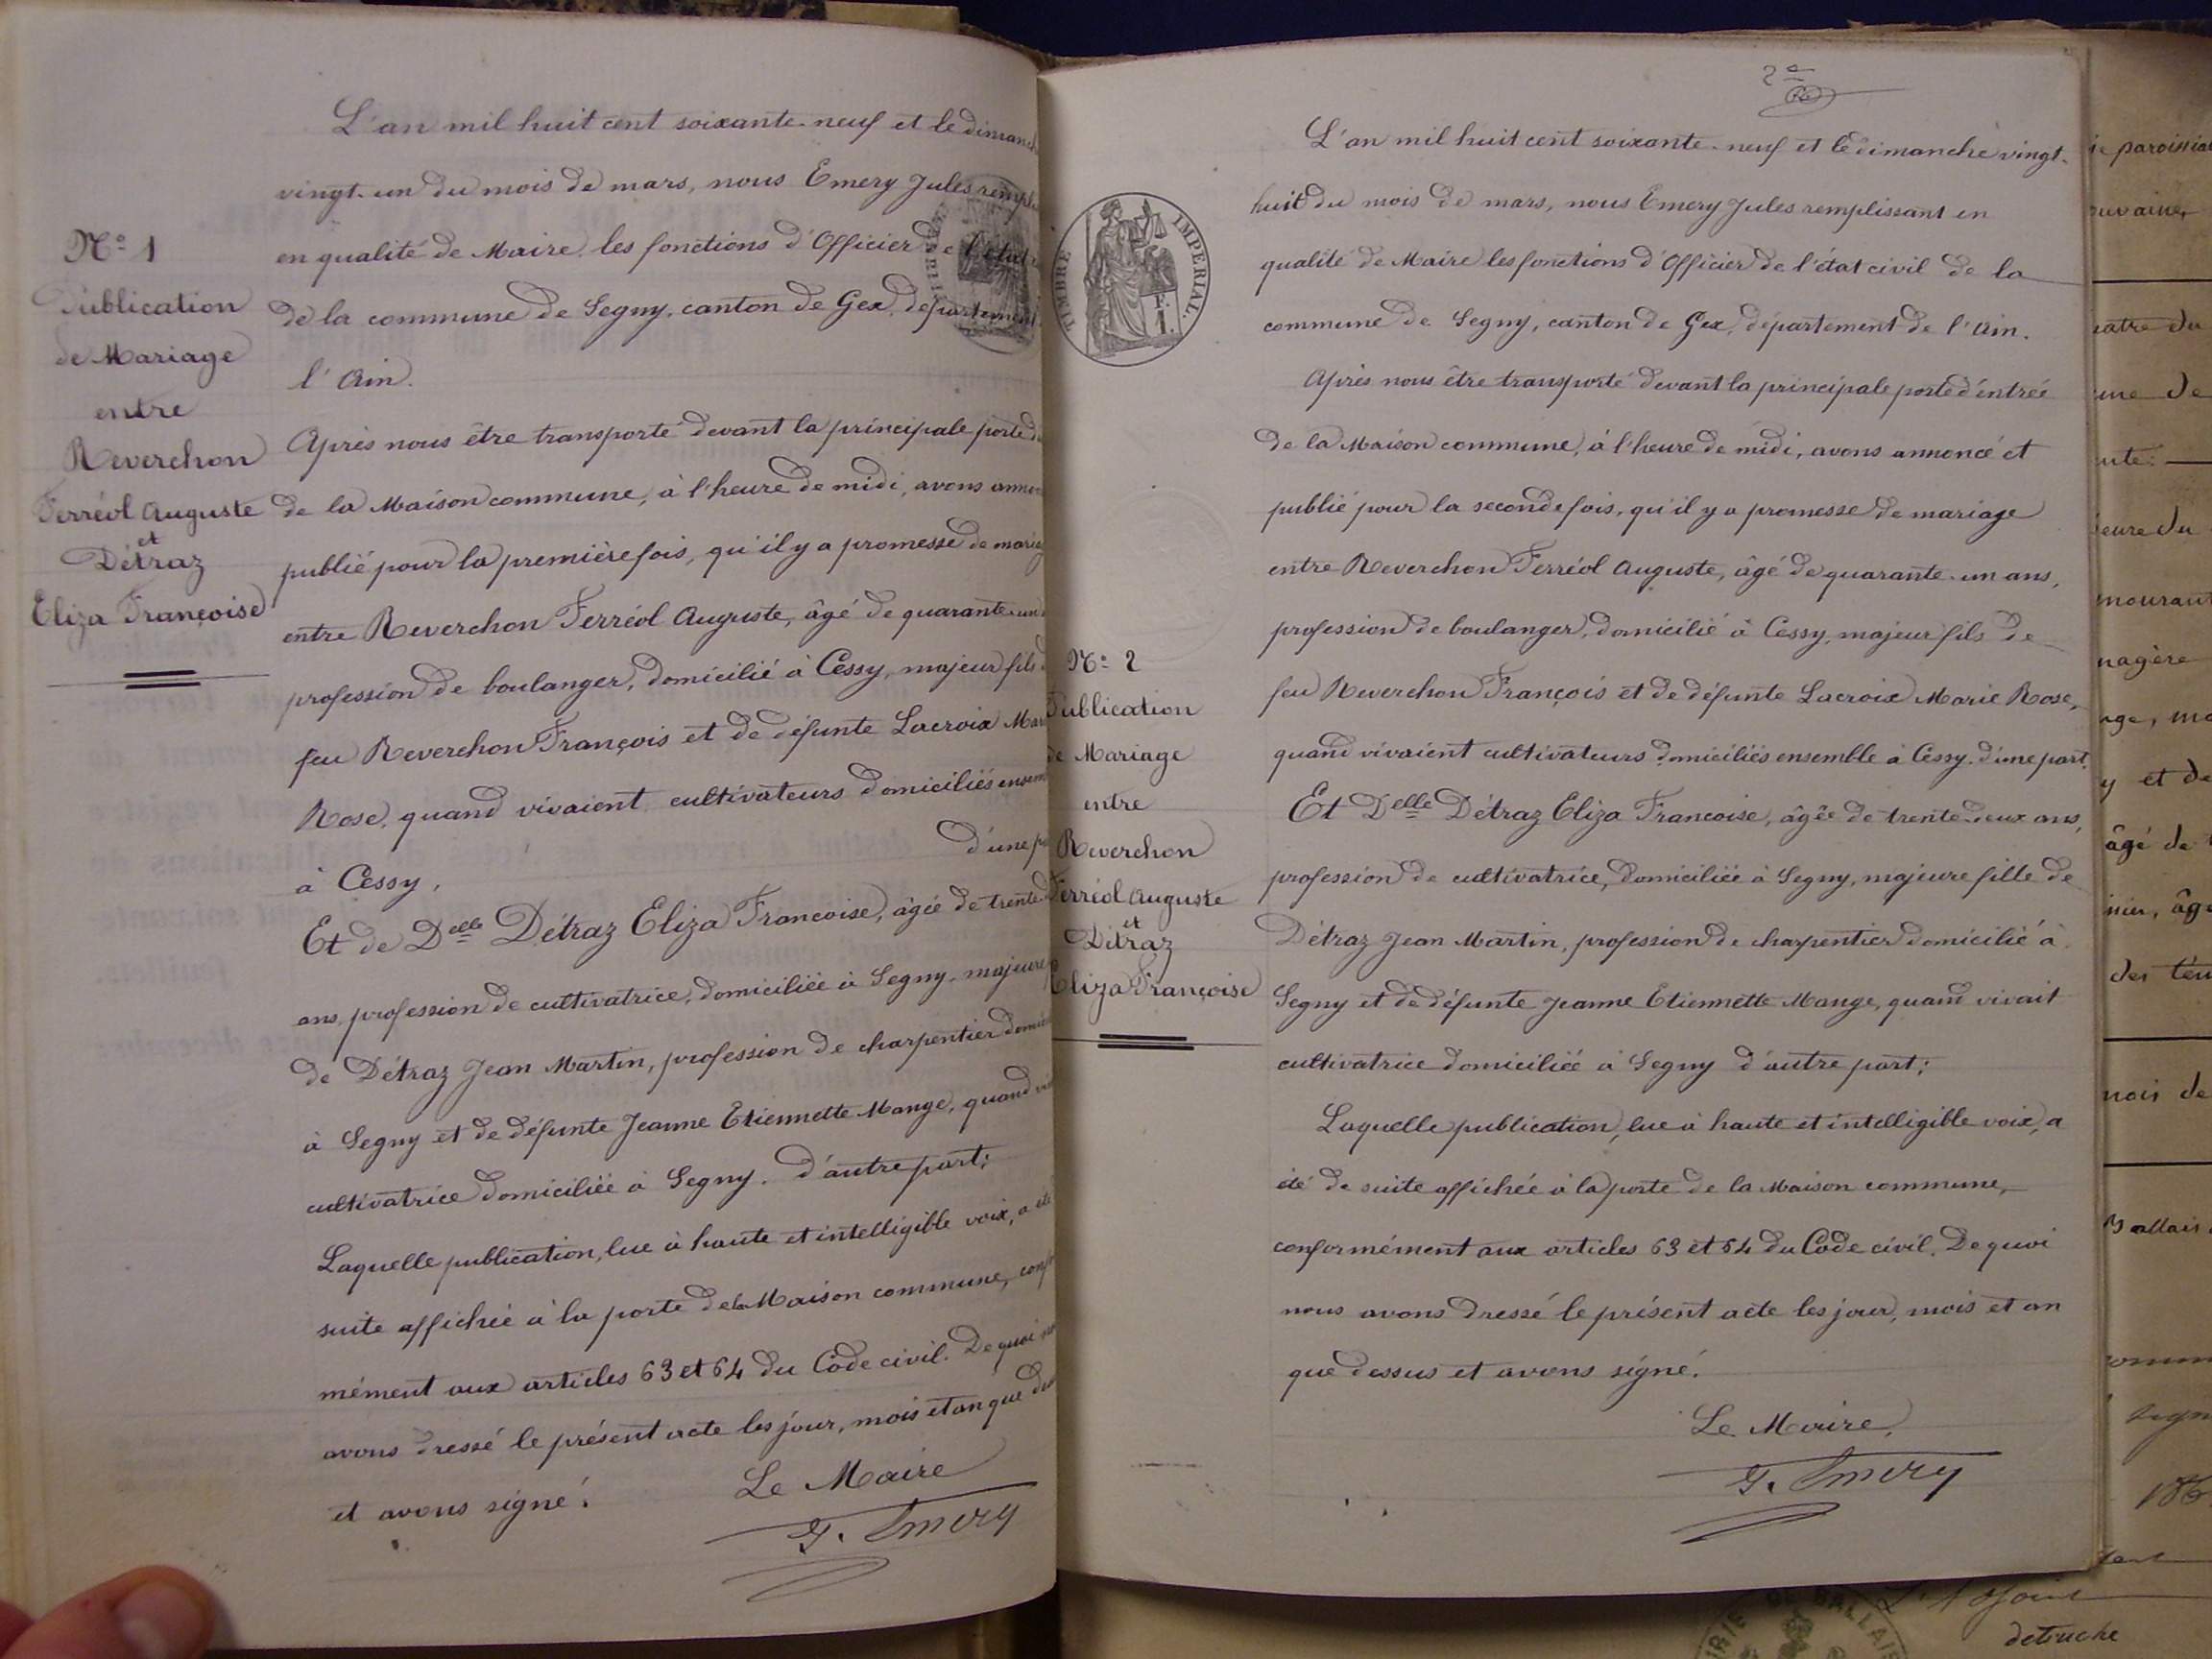 N° 1
Publication
de Mariage
entre
Reverchon
Ferréol Auguste
et
Détraz
Eliza Françoise
L'an mil huit cent soixante-neuf et le dimanch
vingt-un du mois de mars, nous Emery Jules rempl
en qualité de Maire les fonctions d'Officier de l'état
de la commune de Segny, canton de Gex, département
l'Ain.
Après nous être transporté devant la principale porte d
de la Maison commune, à l'heure de midi, avons anno
publié pour la première fois, qu'il y a promesse de maria
entre Reverchon Ferréol Auguste, âgé de quarante-un
profession de boulanger, domicilié à Cessy, majeur fils
feu Reverchon François et de défunte Lacroix Mar
Rose, quand vivaient cultivateurs domiciliés ensem
à Cessy, d'une p
Et de Delle Détraz Eliza Francoise, âgée de trente-
ans, profession de cultivatrice, domiciliée à Segny, majeure
de Détraz Jean Martin, profession de charpentier domic
à Segny et de défunte Jeanne Etiennette Mange, quand vi
cultivatrice domiciliée à Segny. d'autre part;
Laquelle publication, lue à haute et intelligible voix, a été
suite affichée à la porte de la Maison commune, conf
mément aux articles 63 et 64 du Code civil. De quoi
avons dressé le présent acte les jour, mois et an que de
et avons signé.
Le Maire
J. Emery
2e
TIMBRE IMPERIAL.
F.
1.
N° 2
Publication
de Mariage
entre
Reverchon
Ferréol Auguste
et
Détraz
Eliza Françoise
L'an mil huit cent soixante-neuf et le dimanche vingt-
huit du mois de mars, nous Emery Jules remplissant en
qualité de Maire les fonctions d'Officier de l'état civil de la
commune de Segny, canton de Gex, département de l'Ain.
Après nous être transporté devant la principale porte d'entrée
de la Maison commune, à l'heure de midi, avons annoncé et
publié pour la seconde fois, qu'il y a promesse de mariage
entre Reverchon Ferréol Auguste, âgé de quarante-un ans,
profession de boulanger, domicilié à Cessy, majeur fils de
feu Reverchon François et de défunte Lacroix Marie Rose,
quand vivaient cultivateurs domiciliés ensemble à Cessy. d'une part.
Et Delle Détraz Eliza Francoise, âgée de trente-deux ans,
profession de cultivatrice, domiciliée à Segny, majeure fille de
Détraz Jean Martin, profession de charpentier domicilié à
Segny et de défunte Jeanne Etiennette Mange, quand vivait
cultivatrice domiciliée à Segny d'autre part;
Laquelle publication, lue à haute et intelligible voix, a
été de suite affichée à la porte de la Maison commune,
conformément aux articles 63 et 64 du Code civil. De quoi
nous avons dressé le présent acte les jour, mois et an
que dessus et avons signé.
Le Maire,
J. Emery
ie paroissia
atre du
une de
eure du
mourant
nagère
y et de
âgé de
des tém
mois de
Ballais
detruche